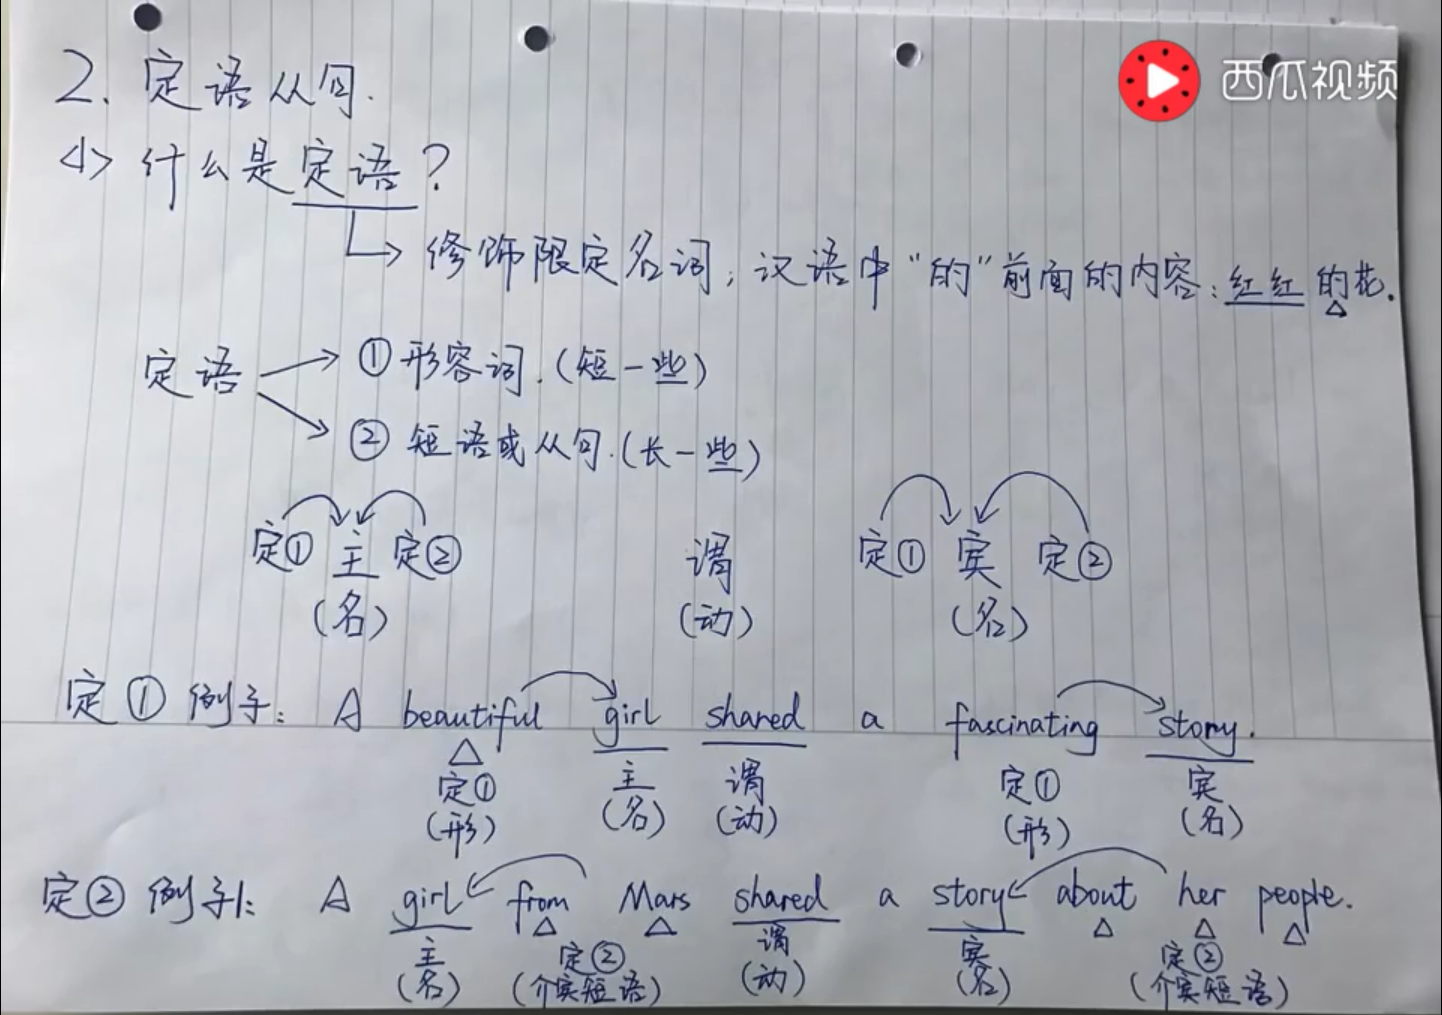 西瓜视频
2. 定语从句.
<1> 什么是定语?
修饰限定名词, 汉语中"的"前面的内容: 红红的花.
定语
① 形容词. (短一些)
② 短语或从句. (长一些)
定① 主 定② 谓 定① 宾 定②
(名) (动) (名)
定① 例子: A beautiful girl shared a fascinating story.
定① 主 谓 定① 宾
(形) (名) (动) (形) (名)
定② 例子1: A girl from Mars shared a story about her people.
主 定② 谓 宾 定②
(名) (介宾短语) (动) (名) (介宾短语)